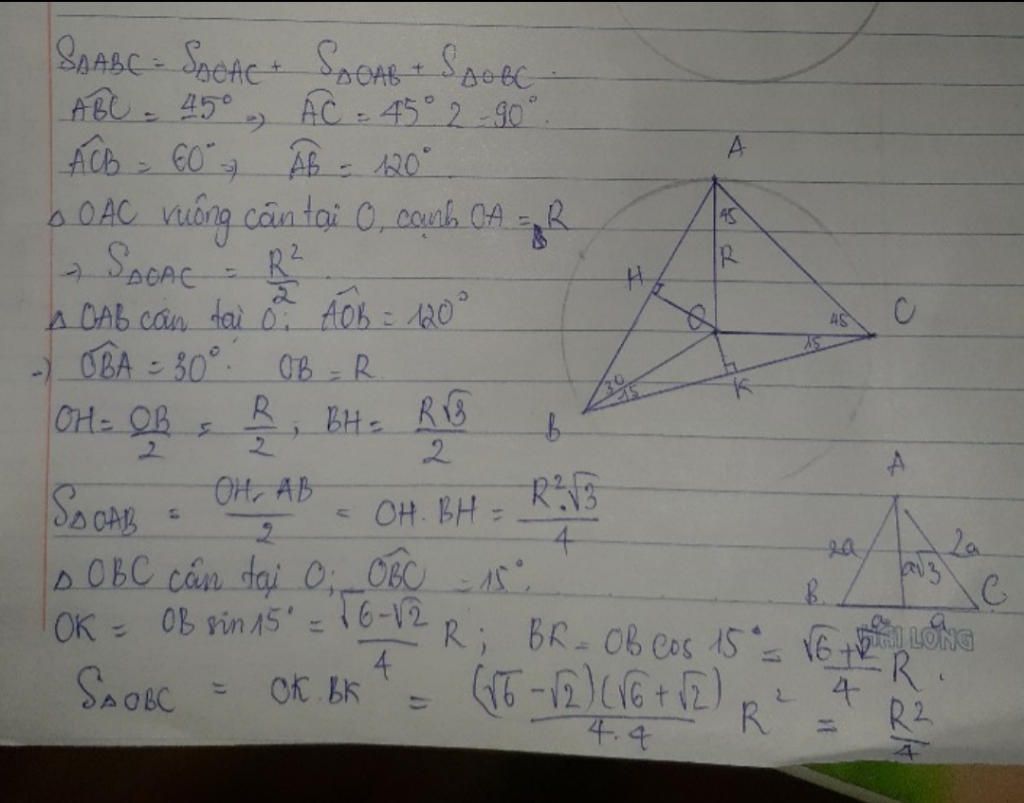 S△ABC = S△OAC + S△OAB + S△OBC.
ABC̑ = 45° => AC̑ = 45°.2 = 90°.
ACB̑ = 60° => AB̑ = 120°
△ OAC vuông cân tại O, cạnh OA = R
→ S△OAC = R²/2.
△ OAB cân tại O; AOB̑ = 120°
→) OBȂ = 30°. OB = R
OH = OB/2 = R/2 ; BH = R√3/2
S△OAB = OH.AB/2 = OH.BH = R².√3/4
△ OBC cân tại O; OBC̑ = 15°.
OK = OB sin15° = √6-√2/4 R ; BK = OB cos 15° = √6+√2/4 R.
S△OBC = OK.BK = (√6-√2)(√6+√2)/4.4 R² = R²/4
A
45
R
H
O
45
C
15
30
15
K
B
A
2a
2a
a√3
B
C
a
a
HẢI LONG